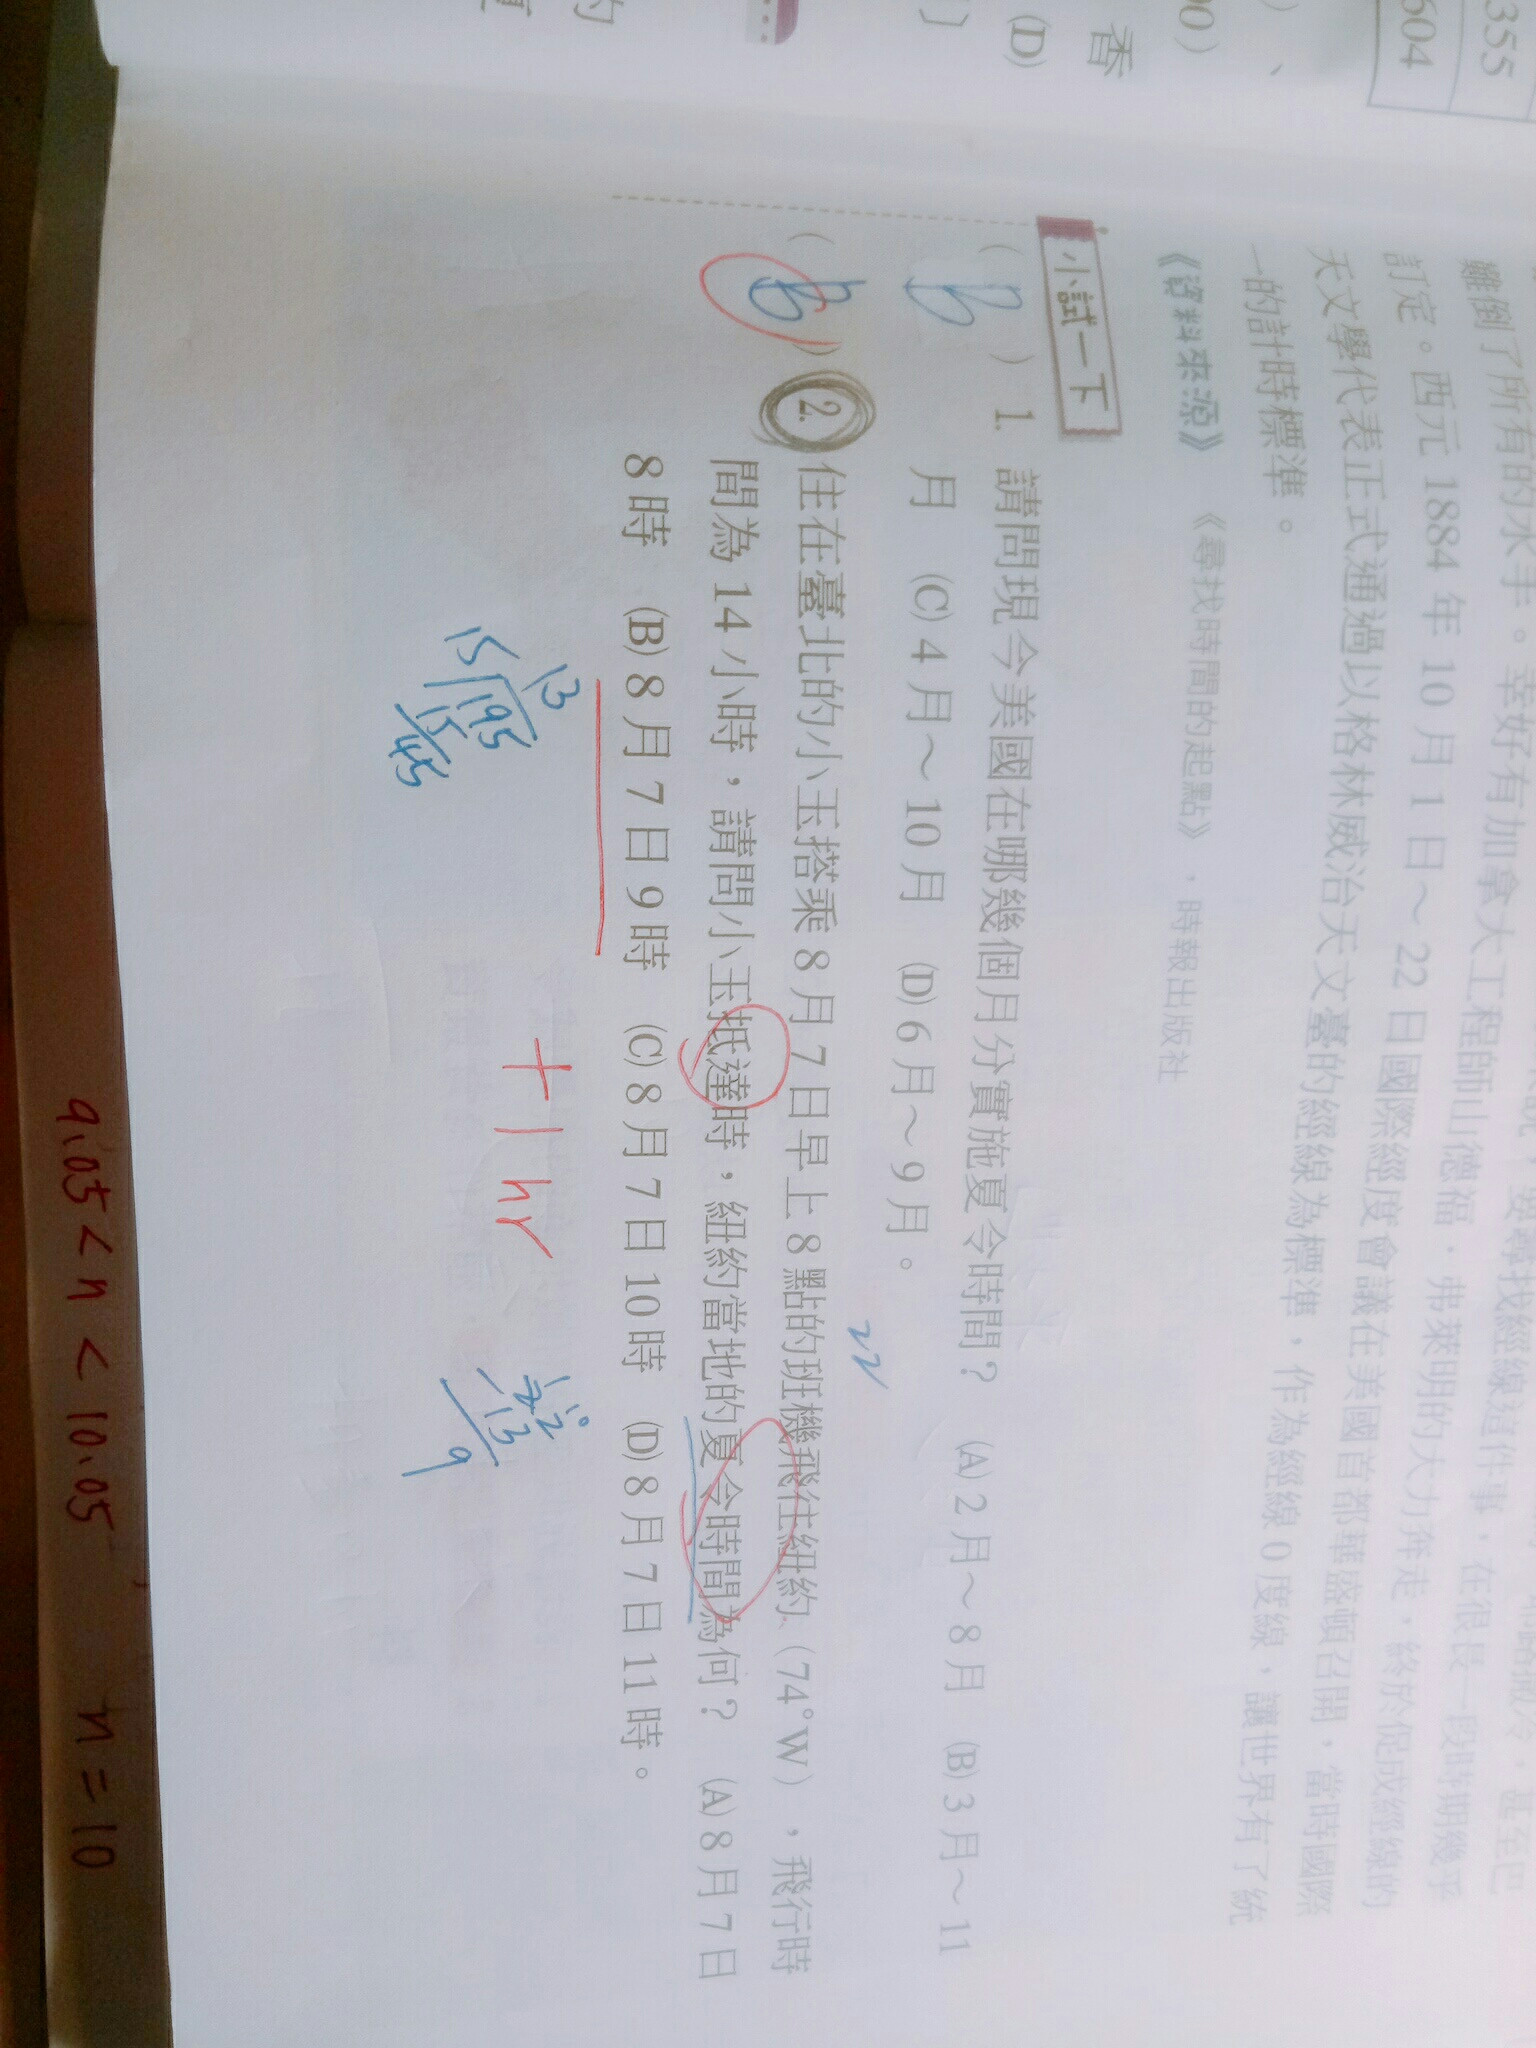 355
604
00)
)、
香
(D)
的
難倒了所有的水手。幸好有加拿大工程師山德福．弗萊明的大力奔走，終於促成經線的
訂定。西元 1884 年 10 月 1 日～22 日國際經度會議在美國首都華盛頓召開，當時國際
天文學代表正式通過以格林威治天文臺的經線為標準，作為經線 0 度線，讓世界有了統
一的計時標準。
《資料來源》 《尋找時間的起點》，時報出版社
小試一下
( B ) 1. 請問現今美國在哪幾個月分實施夏令時間？ (A) 2 月～8 月 (B) 3 月～11
月 (C) 4 月～10 月 (D) 6 月～9 月。
22
( B ) 2. 住在臺北的小玉搭乘 8 月 7 日早上 8 點的班機飛往紐約（74°W），飛行時
間為 14 小時，請問小玉抵達時，紐約當地的夏令時間為何？ (A) 8 月 7 日
8 時 (B) 8 月 7 日 9 時 (C) 8 月 7 日 10 時 (D) 8 月 7 日 11 時。
13
15 195
15
45
+1hr
22
13
9
9.05 < n < 10.05 , n = 10